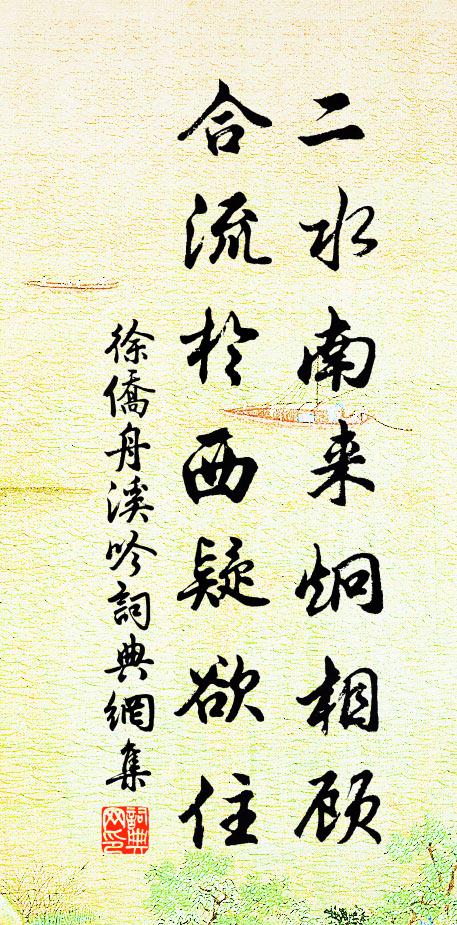 二水南来炯相顾
合流於西疑欲住
徐僑舟溪吟詞典網集
詞典网印